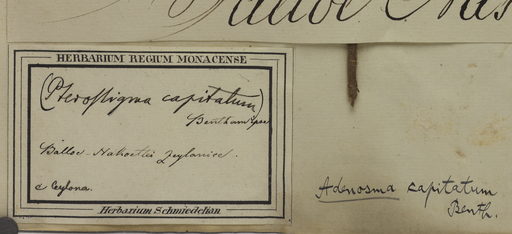 HERBARIUM REGIUM MONACENSE
(Pterostigma capitatum)
Bentham
Balloe- Nahoetiei Zeylanice.
e Ceylona.
Herbarium Schmiedelian
Adenosma capitatum
Benth.